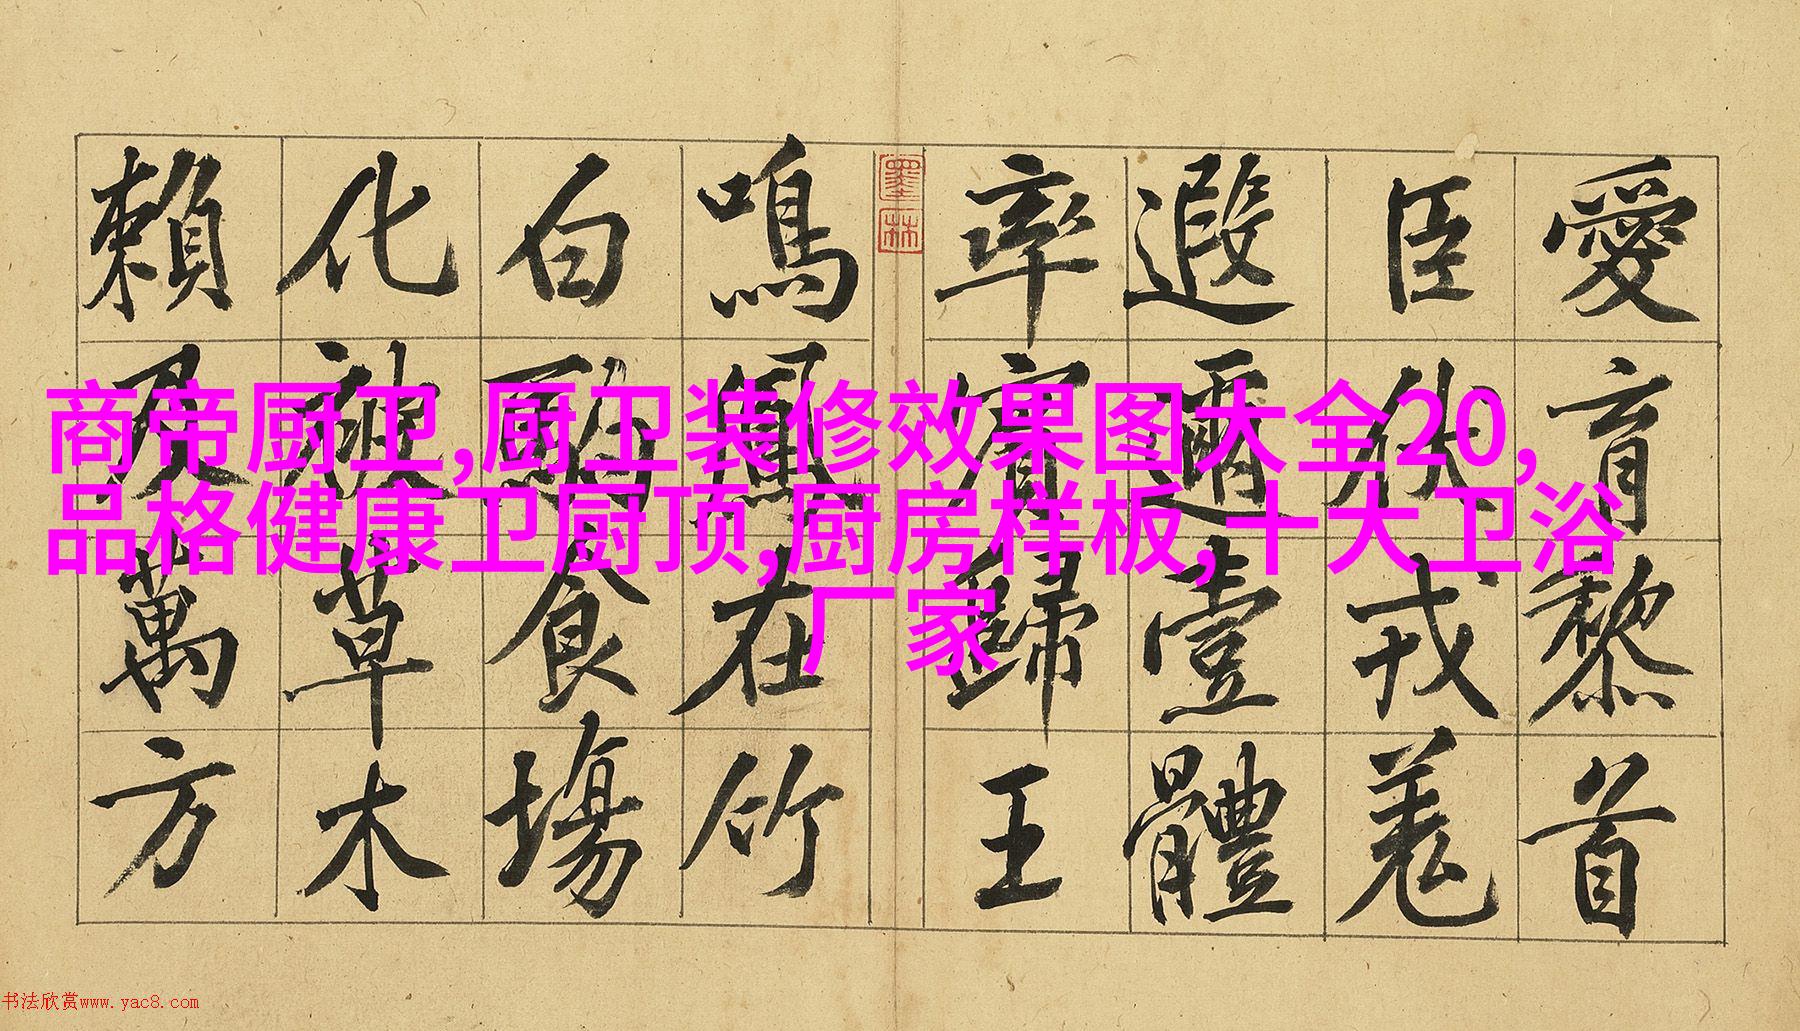 商帝厨卫,厨卫装修效果图大全20,
品格健康卫厨顶,厨房样板,十大卫浴
厂家
愛育黎首
臣伏戎羌
遐邇壹體
率賓歸王
墨林
鳴鳳在竹
白駒食場
化被草木
賴及萬方
书法欣赏www.yac8.com